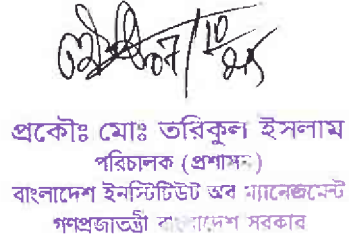 ০৭/১০
প্রকৌঃ মোঃ তরিকুল ইসলাম
পরিচালক (প্রশাসন)
বাংলাদেশ ইনস্টিটিউট অব ম্যানেজমেন্ট
গণপ্রজাতন্ত্রী বাংলাদেশ সরকার